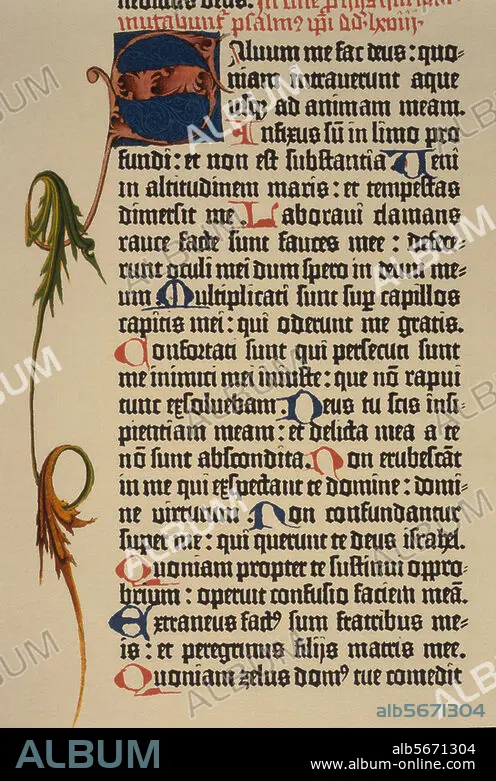 nebilitus deus. In fine
mutabunt᷑ psalm᷒ ip̄i dd·lxviii·
Saluum me fac deus : quo-
niam intrauerunt aque
usq̄ ad animam meam.
Infixus sū in limo pro
fundi : et non est substantia Veni
in altitudinem maris : et tempestas
dimersit me. Laboraui clamans
rauce facte sunt fauces mee : defece-
runt oculi mei dum spero in deum me-
um Multiplicati sunt sup̄ capillos
capitis mei : qui oderunt me gratis.
Confortati sunt qui persecuti sunt
me inimici mei iniuste : que nō rapui
tunc exsoluebam. Deus tu scis insi-
pientiam meam : et delicta mea a te
nō sunt abscondita. Non erubescāt
in me qui exspectant te domine : domi-
ne virtutum. Non confundantur
super me : qui querunt te deus israhel.
Quoniam propter te sustinui oppro-
brium : operuit confusio faciem meā.
Extraneus fact᷒ sum fratribus me-
is : et peregrinus filijs matris mee.
Quoniam zelus dom᷒ tue comedit
alb5671304
ALBUM
alb5671304
www.album-online.com